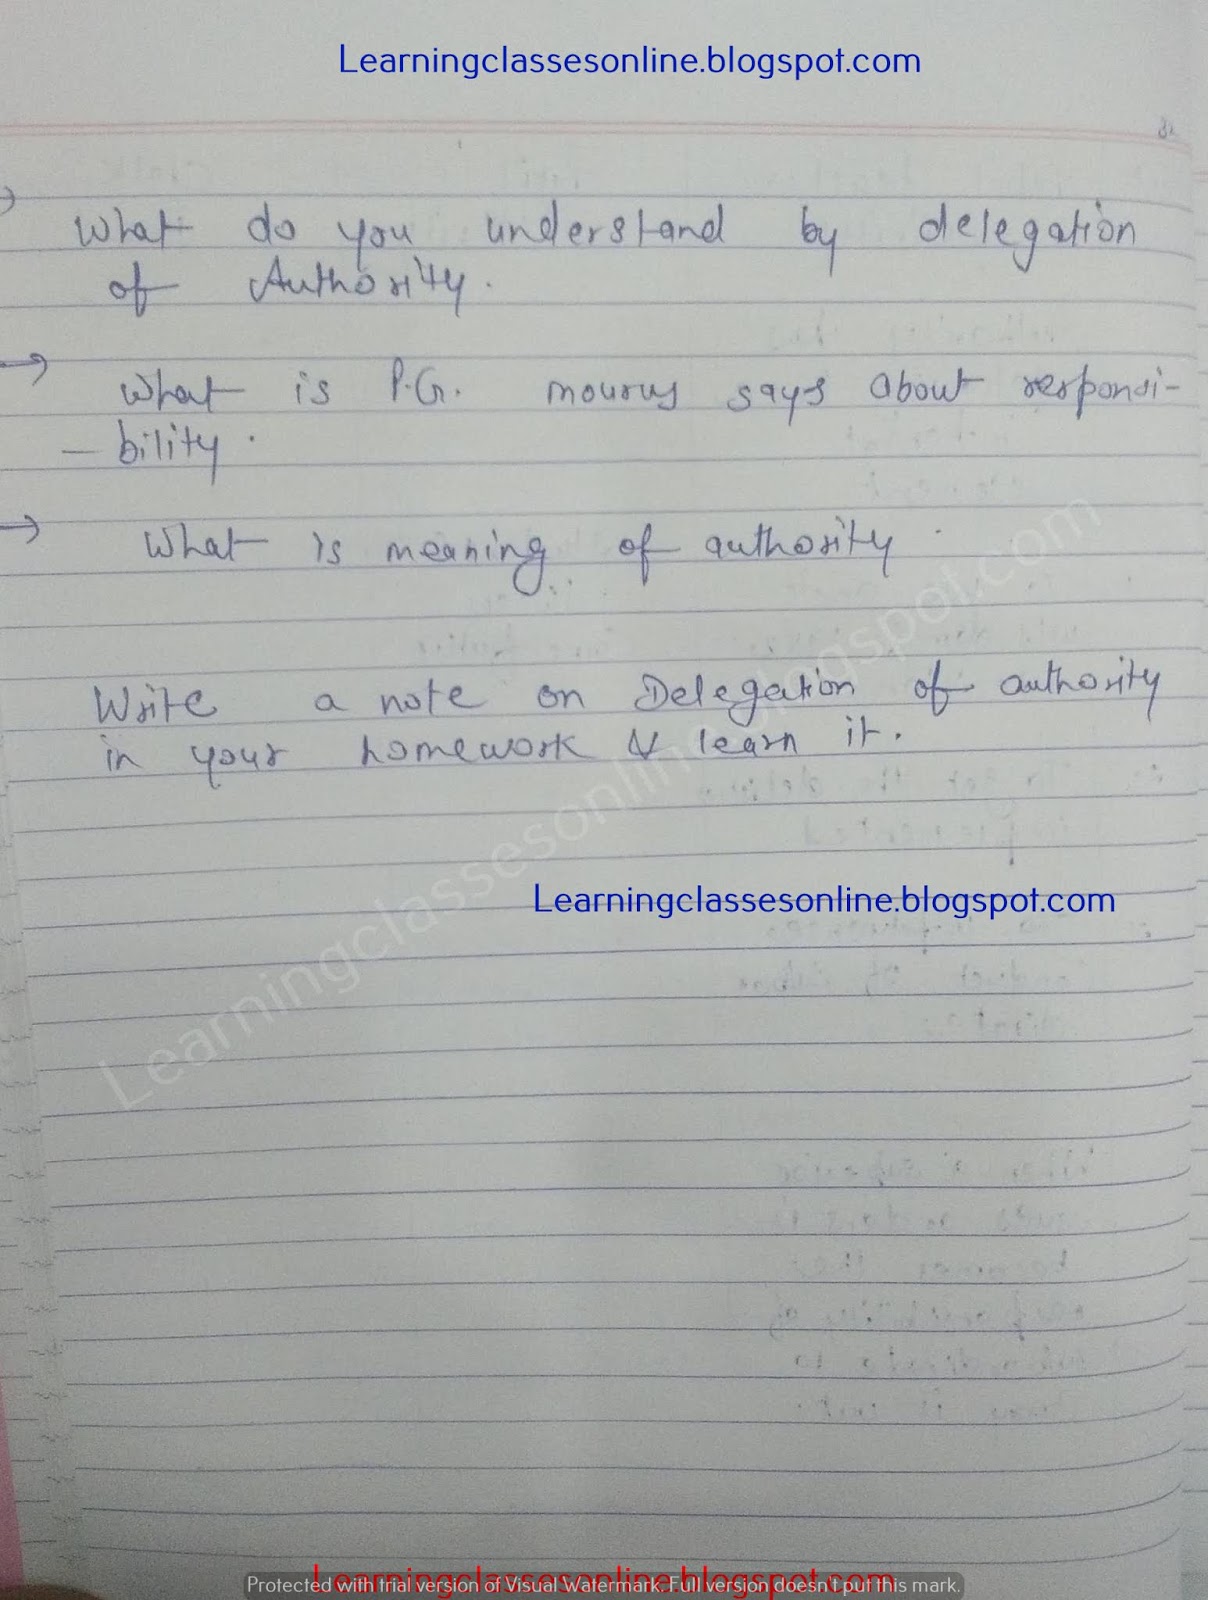 Learningclassesonline.blogspot.com
→ What do you understand by delegation
of Authority.
→ What is P.G. mourus says about responsi-
- bility.
→ What is meaning of authority.
Write a note on Delegation of authority
in your homework & learn it.
Learningclassesonline.blogspot.com
Learningclassesonline.blogspot.com
Learningclassesonline.blogspot.com
Protected with trial version of Visual Watermark. Full version doesn't put this mark.